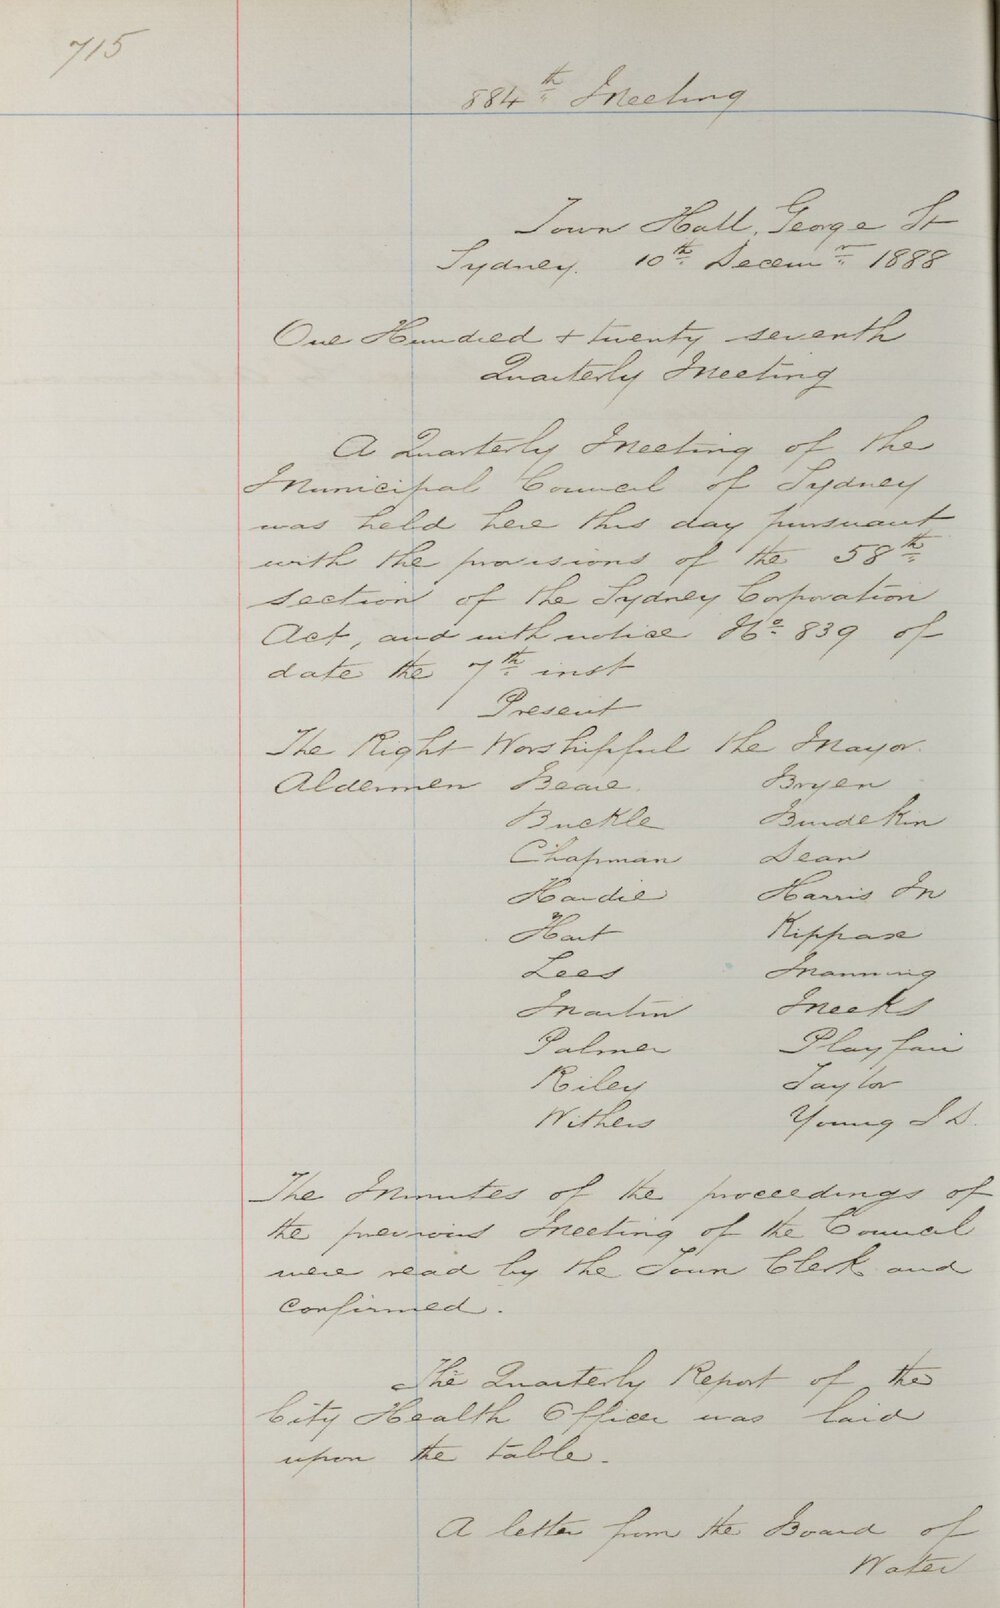 715
884th Meeting
Town Hall, George St
Sydney. 10th Decemr 1888
One Hundred + twenty seventh
Quarterly Meeting
A Quarterly Meeting of the
Municipal Council of Sydney
was held here this day pursuant
with the provisions of the 58th
section of the Sydney Corporation
Act, and with notice No. 839 of
date the 7th inst
Present
The Right Worshipful the Mayor.
Aldermen Beare. Bryen
Buckle Burdekin
Chapman Dean
Hardie Harris Jn
Hart Kippax
Lees Manning
Martin Meeks
Palmer Playfair
Riley Taylor
Withers Young J D.
The Minutes of the proceedings of
the previous Meeting of the Council
were read by the Town Clerk and
confirmed.
The Quarterly Report of the
City Health Officer was laid
upon the table.
A letter from the Board of
Water